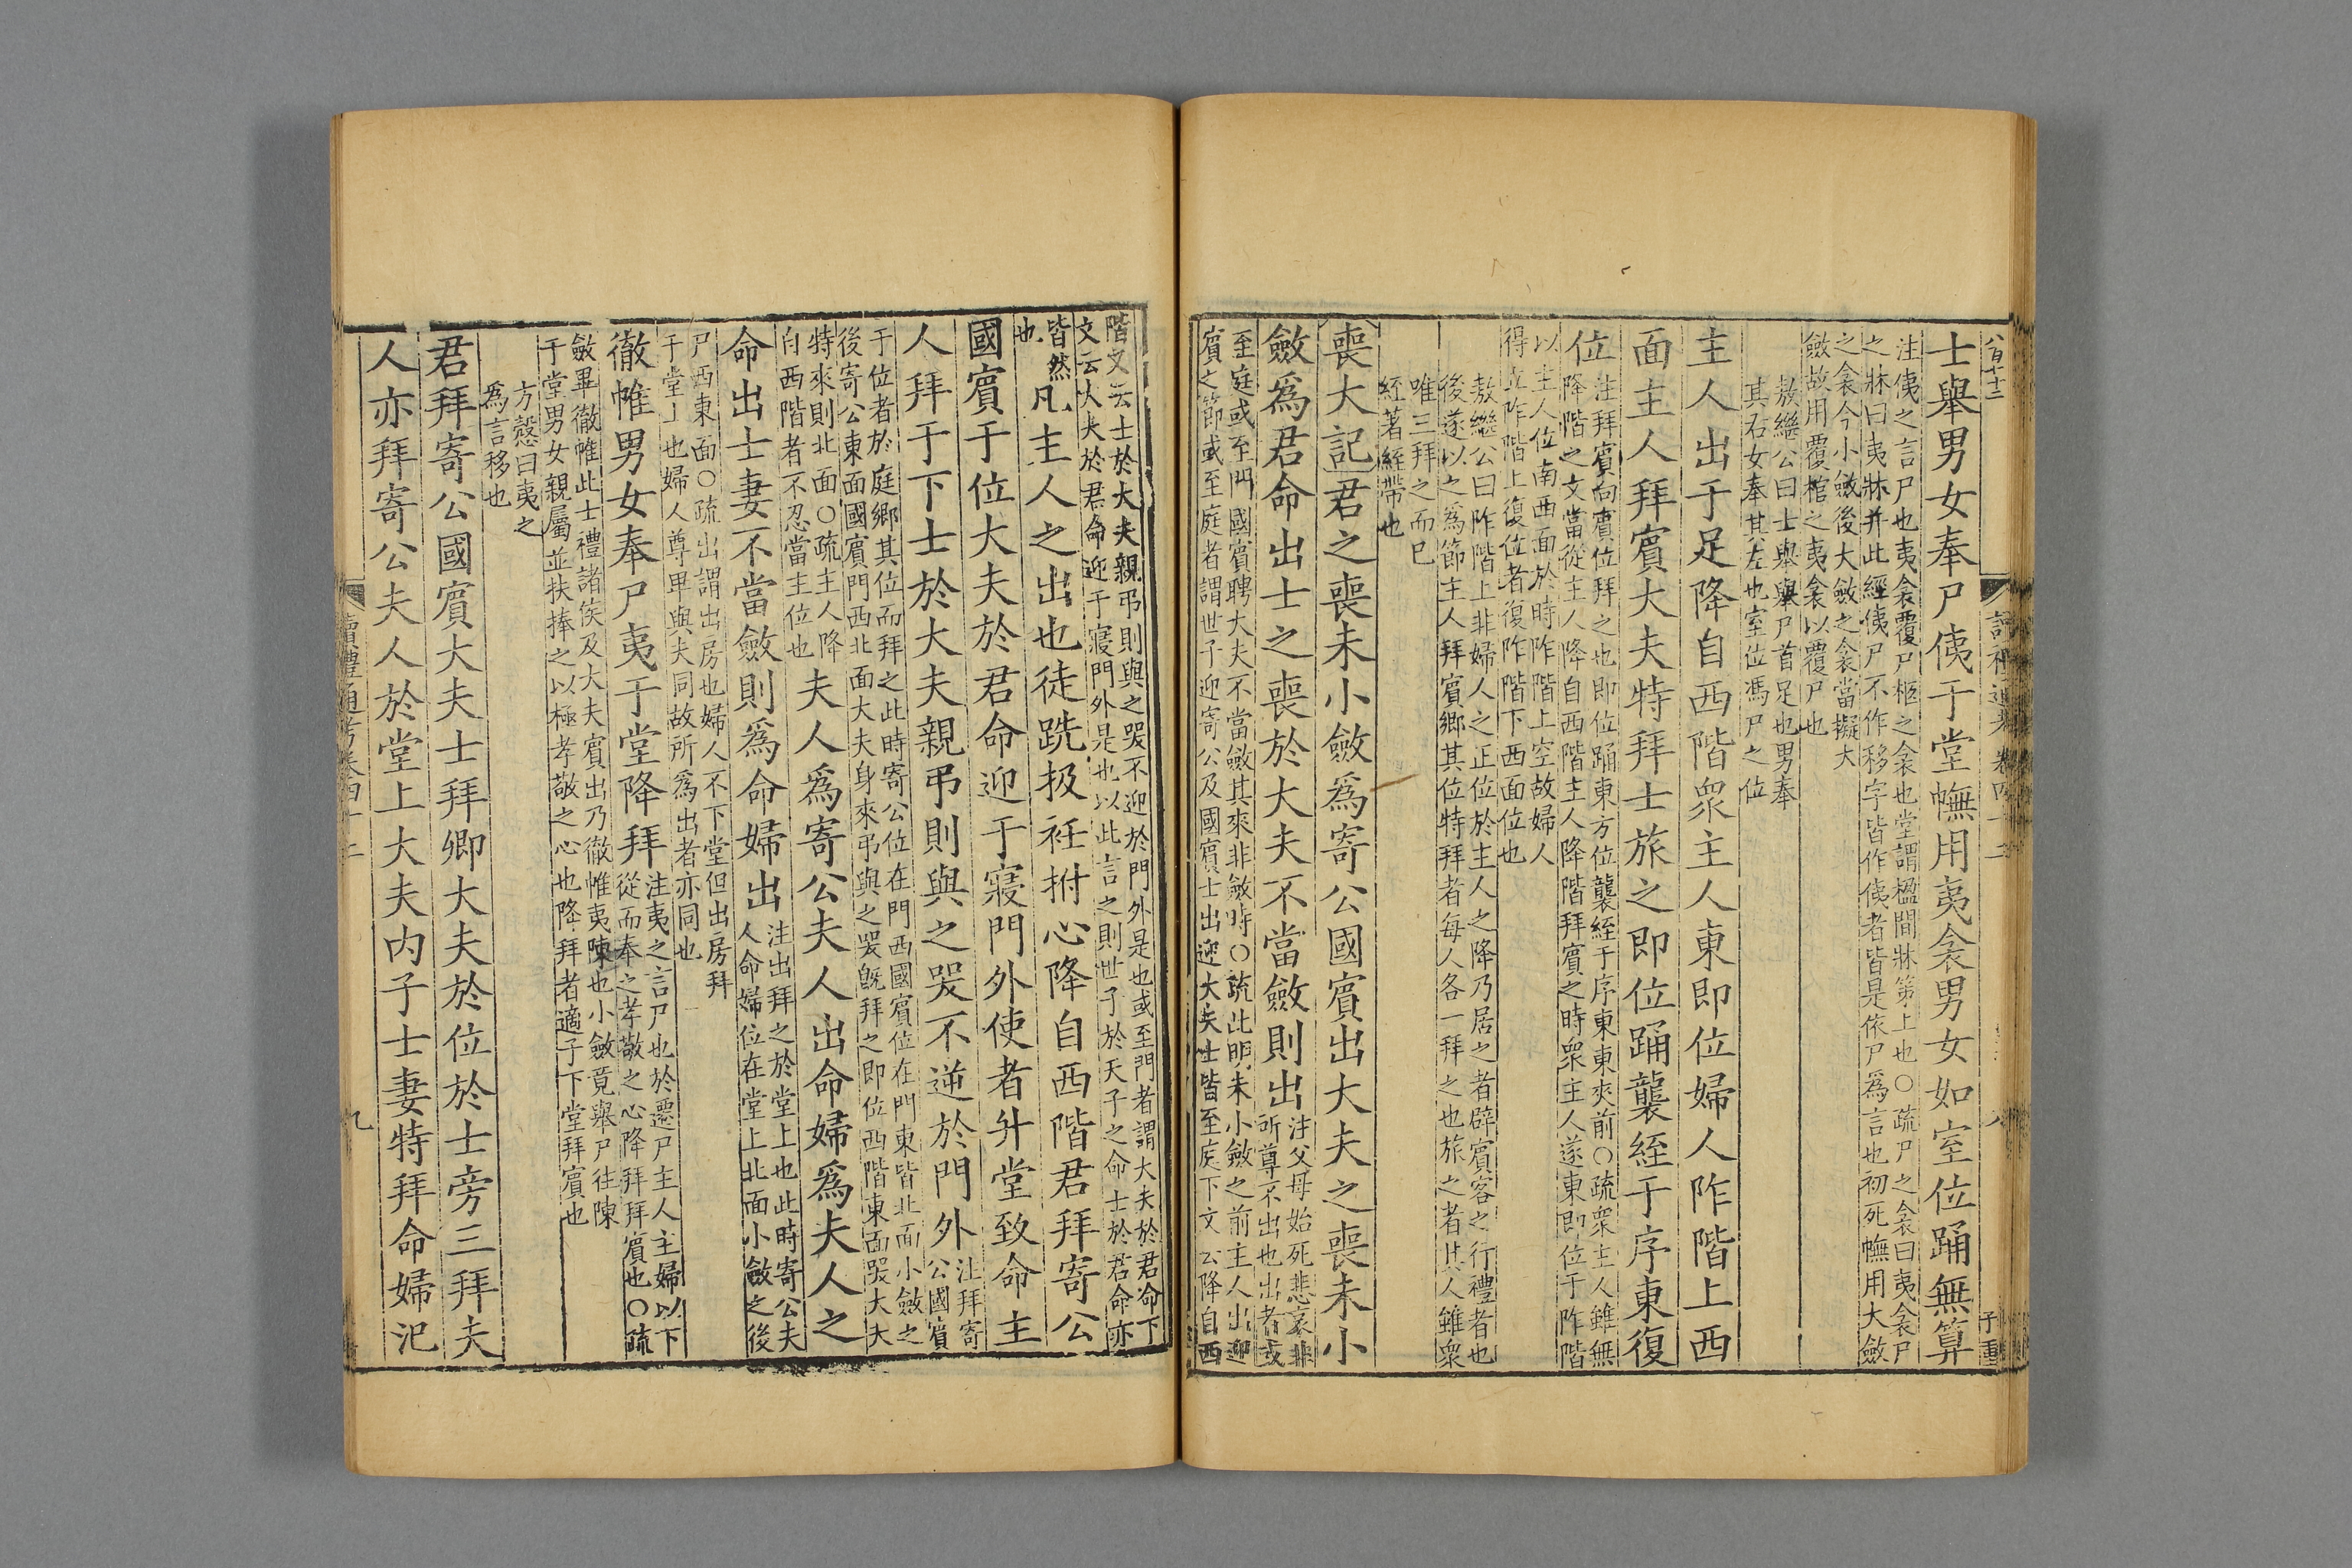 士舉男女奉尸侇于堂幠用夷衾男女如室位踊無算
注侇之言尸也夷衾覆尸柩之衾也堂謂楹間牀笫上也○疏尸之衾曰夷衾尸
之牀曰夷牀并此經侇尸不作移字皆作侇者皆是依尸為言也初死幠用大斂
之衾今小斂後大斂之衾當擬大
斂故用覆棺之夷衾以覆尸也
敖繼公曰士舉舉尸首足也男奉
其右女奉其左也室位馮尸之位
主人出于足降自西階衆主人東即位婦人阼階上西
面主人拜賔大夫特拜士旅之即位踊襲絰于序東復
位
注拜賔向賔位拜之也即位踊東方位襲絰于序東東夾前○疏衆主人雖無
降階之文當從主人降自西階主人降階拜賔之時衆主人遂東即位于阼階
以主人位南西面於時阼階上空故婦人
得立阼階上復位者復阼階下西面位也
敖繼公曰阼階上非婦人之正位於主人之降乃居之者辟賔客之行禮者也
後遂以之為節主人拜賔鄉其位特拜者每人各一拜之也旅之者其人雖衆
唯三拜之而已
絰著絰帶也
喪大記君之喪未小斂爲寄公國賔出大夫之喪未小
斂爲君命出士之喪於大夫不當斂則出
注父母始死悲哀非
所尊不出也出者或
至庭或至門國賔聘大夫不當斂其來非斂時○疏此明未小斂之前主人出迎
賔之節或至庭者謂世子迎寄公及國賔士出迎大夫士皆至庭下文云降自西
階又云士於大夫親弔則與之哭不迎於門外是也或至門者謂大夫於君命下
文云大夫於君命迎于寢門外是也以此言之則世子於天子之命士於君命亦
皆然
也
凡主人之出也徒跣扱衽拊心降自西階君拜寄公
國賔于位大夫於君命迎于寢門外使者升堂致命主
人拜于下士於大夫親弔則與之哭不逆於門外
注拜寄
公國賔
于位者於庭鄉其位而拜之此時寄公位在門西國賔位在門東皆北面小斂之
後寄公東面國賔門西北面大夫身來弔與之哭旣拜之即位西階東面哭大夫
特來則北面○疏主人降
自西階者不忍當主位也
夫人爲寄公夫人出命婦爲夫人之
命出士妻不當斂則爲命婦出
注出拜之於堂上也此時寄公夫
人命婦位在堂上北面小斂之後
尸西東面○疏出謂出房也婦人不下堂但出房拜
于堂上也婦人尊卑與夫同故所爲出者亦同也
徹帷男女奉尸夷于堂降拜
注夷之言尸也於遷尸主人主婦以下
從而奉之孝敬之心降拜拜賔也○疏
斂畢徹帷此士禮諸侯及大夫賔出乃徹帷夷陳也小斂竟舉尸往陳
于堂男女親屬並扶捧之以極孝敬之心也降拜者適子下堂拜賔也
方慤曰夷之
爲言移也
君拜寄公國賔大夫士拜卿大夫於位於士旁三拜夫
人亦拜寄公夫人於堂上大夫内子士妻特拜命婦汜
讀禮通考卷四十二
九